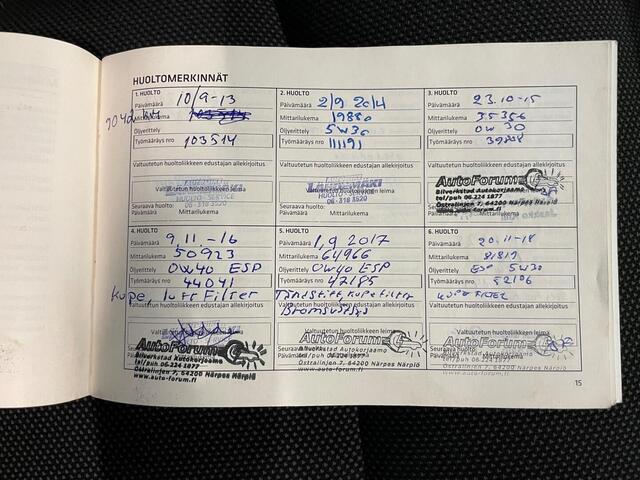 HUOLTOMERKINNÄT
1. HUOLTO
Päivämäärä 10/9-13
Mittarilukema
Öljyerittely
Työmääräys nro 103514
Valtuutetun huoltoliikkeen edustajan allekirjoitus
Valtuutetun huoltoliikkeen leima
HUOLTO-SERVICE
06-318 3520
Seuraava huolto:
Päivämäärä Mittarilukema
2. HUOLTO
Päivämäärä 2/9 2014
Mittarilukema 19880
Öljyerittely 5W30
Työmääräys nro 111191
Valtuutetun huoltoliikkeen edustajan allekirjoitus
LÄHDEMÄKI
HUOLTO-SERVICE
06-318 3520
Seuraava huolto:
Päivämäärä Mittarilukema
3. HUOLTO
Päivämäärä 23.10-15
Mittarilukema 35356
Öljyerittely 0W30
Työmääräys nro
Valtuutetun huoltoliikkeen edustajan allekirjoitus
AutoForum
Bilverkstad Autokorjaamo
tel/puh 06-224 1877
Östralinjen 7, 64200 Närpes Närpiö
www.auto-forum.fi
4. HUOLTO
Päivämäärä 9,11.-16
Mittarilukema 50923
Öljyerittely 0W40 ESP
Työmääräys nro 44041
kupe, luft Filter
Valtuutetun huoltoliikkeen edustajan allekirjoitus
Valtuutetun huoltoliikkeen leima
AutoForum
Bilverkstad Autokorjaamo
tel/puh 06-224 1877
Östralinjen 7, 64200 Närpes Närpiö
www.auto-forum.fi
5. HUOLTO
Päivämäärä 1,9 2017
Mittarilukema 64966
Öljyerittely 0W40 ESP
Työmääräys nro 47185
Tändstift, kupefilter
Valtuutetun huoltoliikkeen edustajan allekirjoitus
Bromsvätska
Valtuutetun huoltoliikkeen leima
AutoForum
Bilverkstad Autokorjaamo
tel/puh 06-224 1877
Östralinjen 7, 64200 Närpes Närpiö
www.auto-forum.fi
6. HUOLTO
Päivämäärä 20.11-18
Mittarilukema 81819
Öljyerittely ESP 5W30
Työmääräys nro 52106
KUPEFILTER
Valtuutetun huoltoliikkeen edustajan allekirjoitus
Valtuutetun huoltoliikkeen leima
AutoForum
Bilverkstad Autokorjaamo
tel/puh 06-224 1877
Östralinjen 7, 64200 Närpes Närpiö
www.auto-forum.fi
15